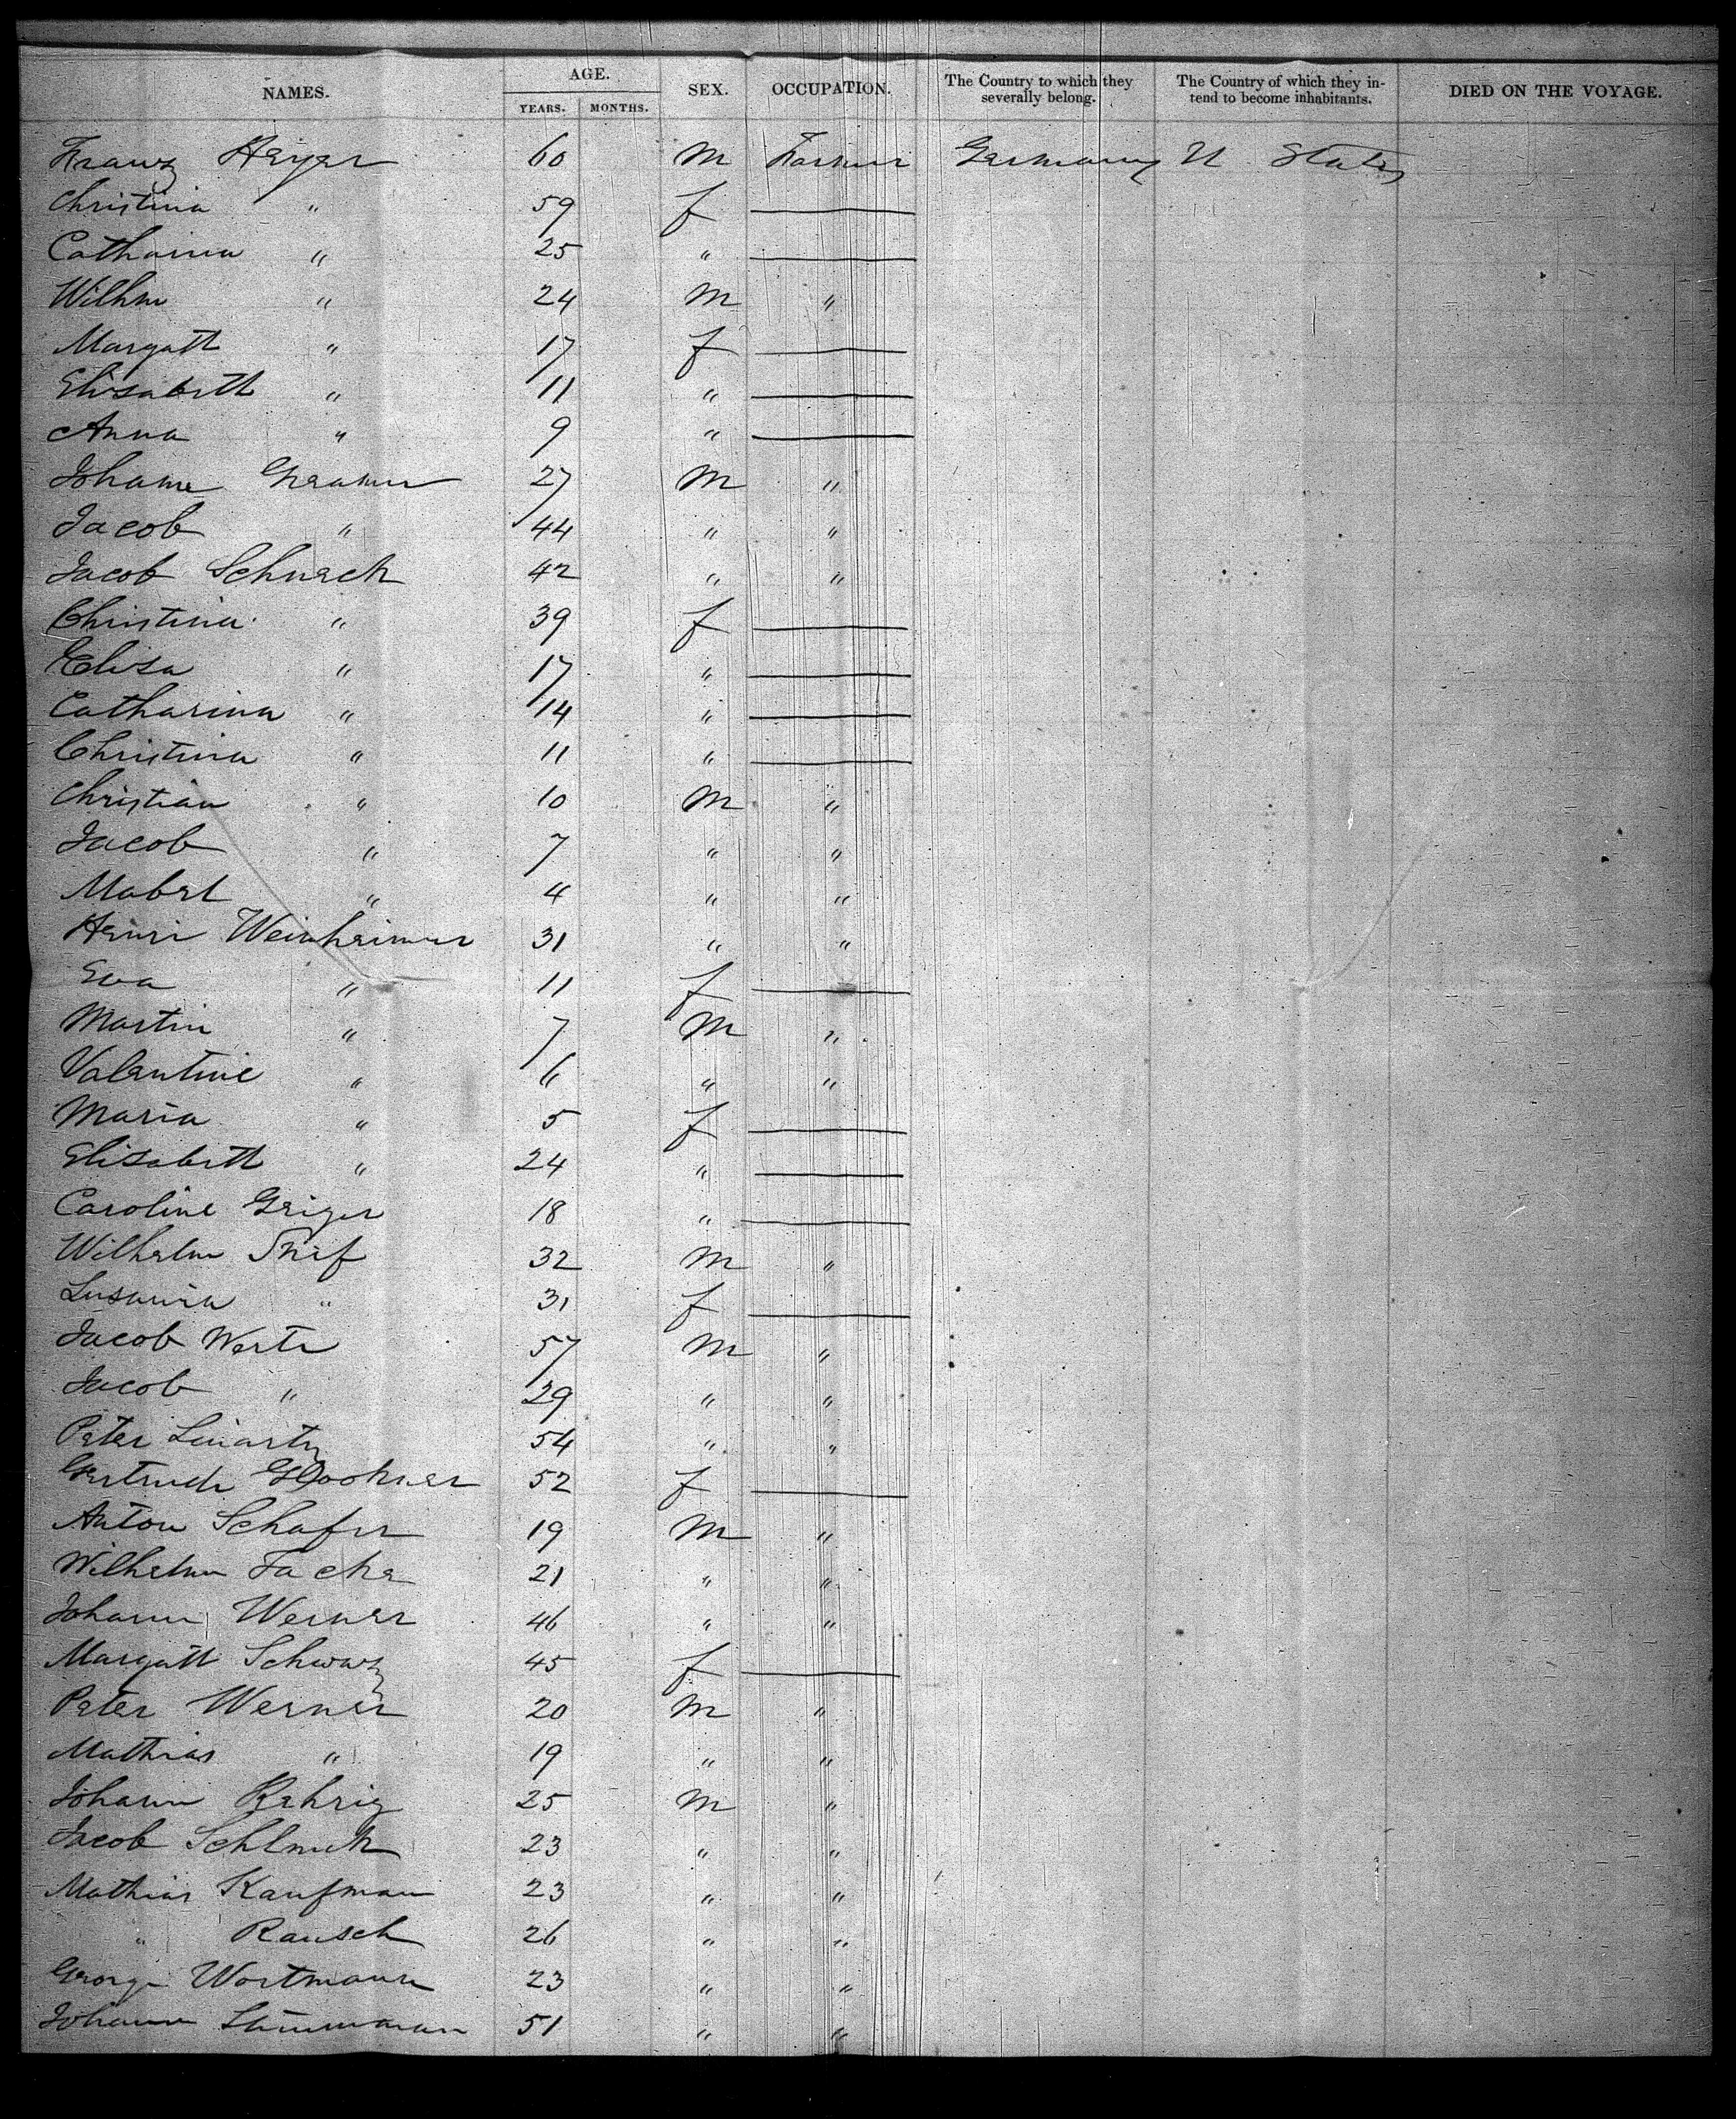 NAMES. AGE. SEX. OCCUPATION. The Country to which they severally belong. The Country of which they intend to become inhabitants. DIED ON THE VOYAGE.
YEARS. MONTHS.
Franz Heyer 60 m Farmer Germany U States
Christina " 59 f ——
Catharina " 25 " ——
Wilhm " 24 m "
Margatt " 17 f ——
Elisabeth " 11 " ——
Anna " 9 " ——
Johann 27 m "
Jacob " 44 " "
Jacob Schneck 42 " "
Christina " 39 f ——
Elisa " 17 " ——
Catharina " 14 " ——
Christina " 11 " ——
Christian " 10 m "
Jacob " 7 " "
Mabel " 4 " "
Henri Weinheimer 31 " "
Eva " 11 f ——
Martin " 7 m "
Valentine " 6 " "
Maria " 5 f ——
Elisabeth " 24 " ——
Caroline Geiger 18 " ——
Wilhelm 32 m "
Susanna " 31 f ——
Jacob 57 m "
Jacob " 29 " "
Peter 54 " "
Gertrude 52 f ——
Anton Schafer 19 m "
Wilhelm 21 " "
Johann Werner 46 " "
Margatt Schwarz 45 f ——
Peter Werner 20 m "
Mathias " 19 " "
Johann 25 m "
Jacob 23 " "
Mathias Kaufman 23 " "
" Rausch 26 " "
George Wortmann 23 " "
Johann 51 " "